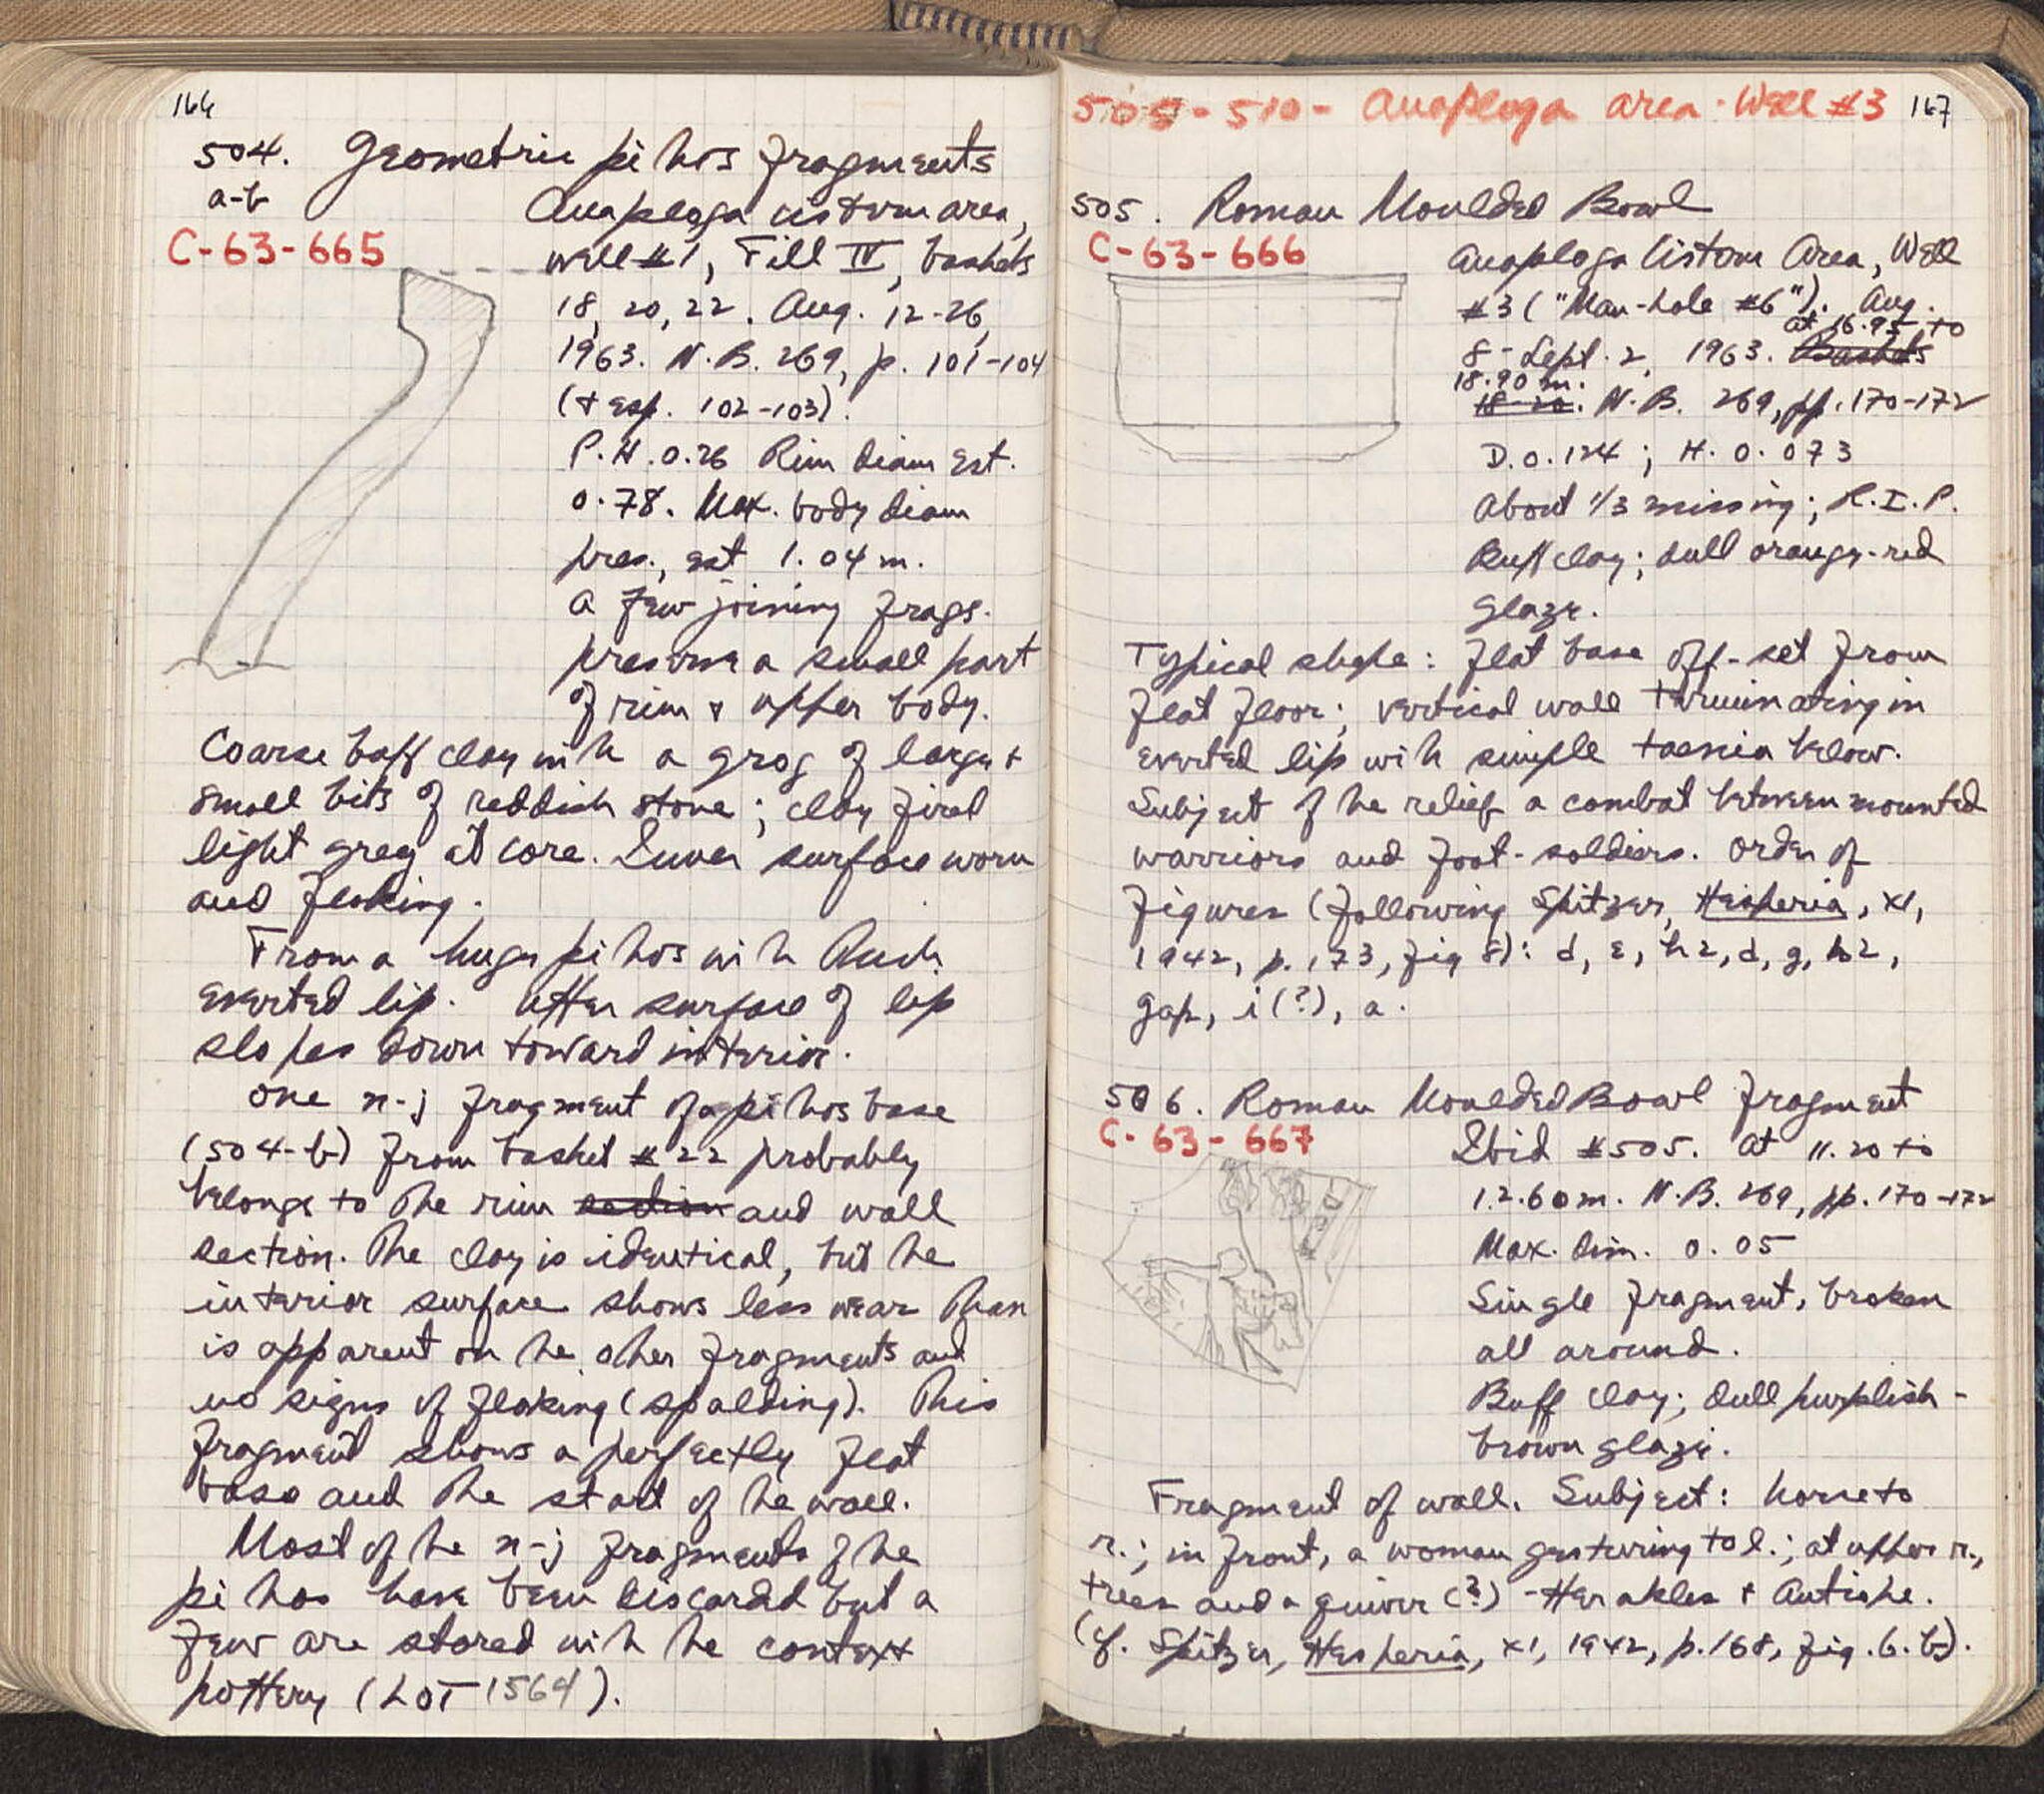 166
504. Geometric pithos fragments
a-b
C-63-665
Anaploga cistern area,
well #1, Fill IV, baskets
18, 20, 22. Aug. 12-26,
1963. N.B. 269, p. 101-104
(+ esp. 102-103).
P.H. 0.26 Rim diam est.
0.78. Max. body diam
pres., est 1.04 m.
A few joining frags.
preserve a small part
of rim + upper body.
Coarse buff clay with a grog of large +
small bits of reddish stone; clay fired
light grey at core. Inner surface worn
and flaking.
From a huge pithos with thick
everted lip. Upper surface of lip
slopes down toward interior.
One n-j fragment of a pithos base
(504-b) from basket #22 probably
belongs to the rim section and wall
section. The clay is identical, but the
interior surface shows less wear than
is apparent on the other fragments and
no signs of flaking (spalding). This
fragment shows a perfectly flat
base and the start of the wall.
Most of the n-j fragments of the
pithos have been discarded but a
few are stored with the context
pottery (LOT 1564).
505-510 - Anaploga area - Well #3
167
505. Roman Moulded Bowl
C-63-666
Anaploga Cistern Area, Well
#3 ("Man-hole #6"). Aug.
at 16.95 to
8 - Sept. 2, 1963. Baskets
18.90 m.
18-20. N.B. 269, pp. 170-172
D. 0.124; H. 0.073
About 1/3 missing; R.I.P.
Buff clay; dull orangy-red
glaze.
Typical shape: flat base off-set from
flat floor; vertical wall terminating in
everted lip with simple taenia below.
Subject of the relief a combat between mounted
warriors and foot-soldiers. Order of
figures (following Spitzer, Hesperia, XI,
1942, p. 173, fig 8): d, e, h2, d, g, h2,
gap, i(?), a.
506. Roman Moulded Bowl fragment
C-63-667
Ibid #505. At 11.20 to
12.60 m. N.B. 269, pp. 170-172
Max. dim. 0.05
Single fragment, broken
all around.
Buff clay; dull purplish-
brown glaze.
Fragment of wall. Subject: horse to
r.; in front, a woman gesturing to l.; at upper r.,
tree and a quiver (?) - Herakles + Antiope.
(cf. Spitzer, Hesperia, XI, 1942, p. 168, fig. 6.b).